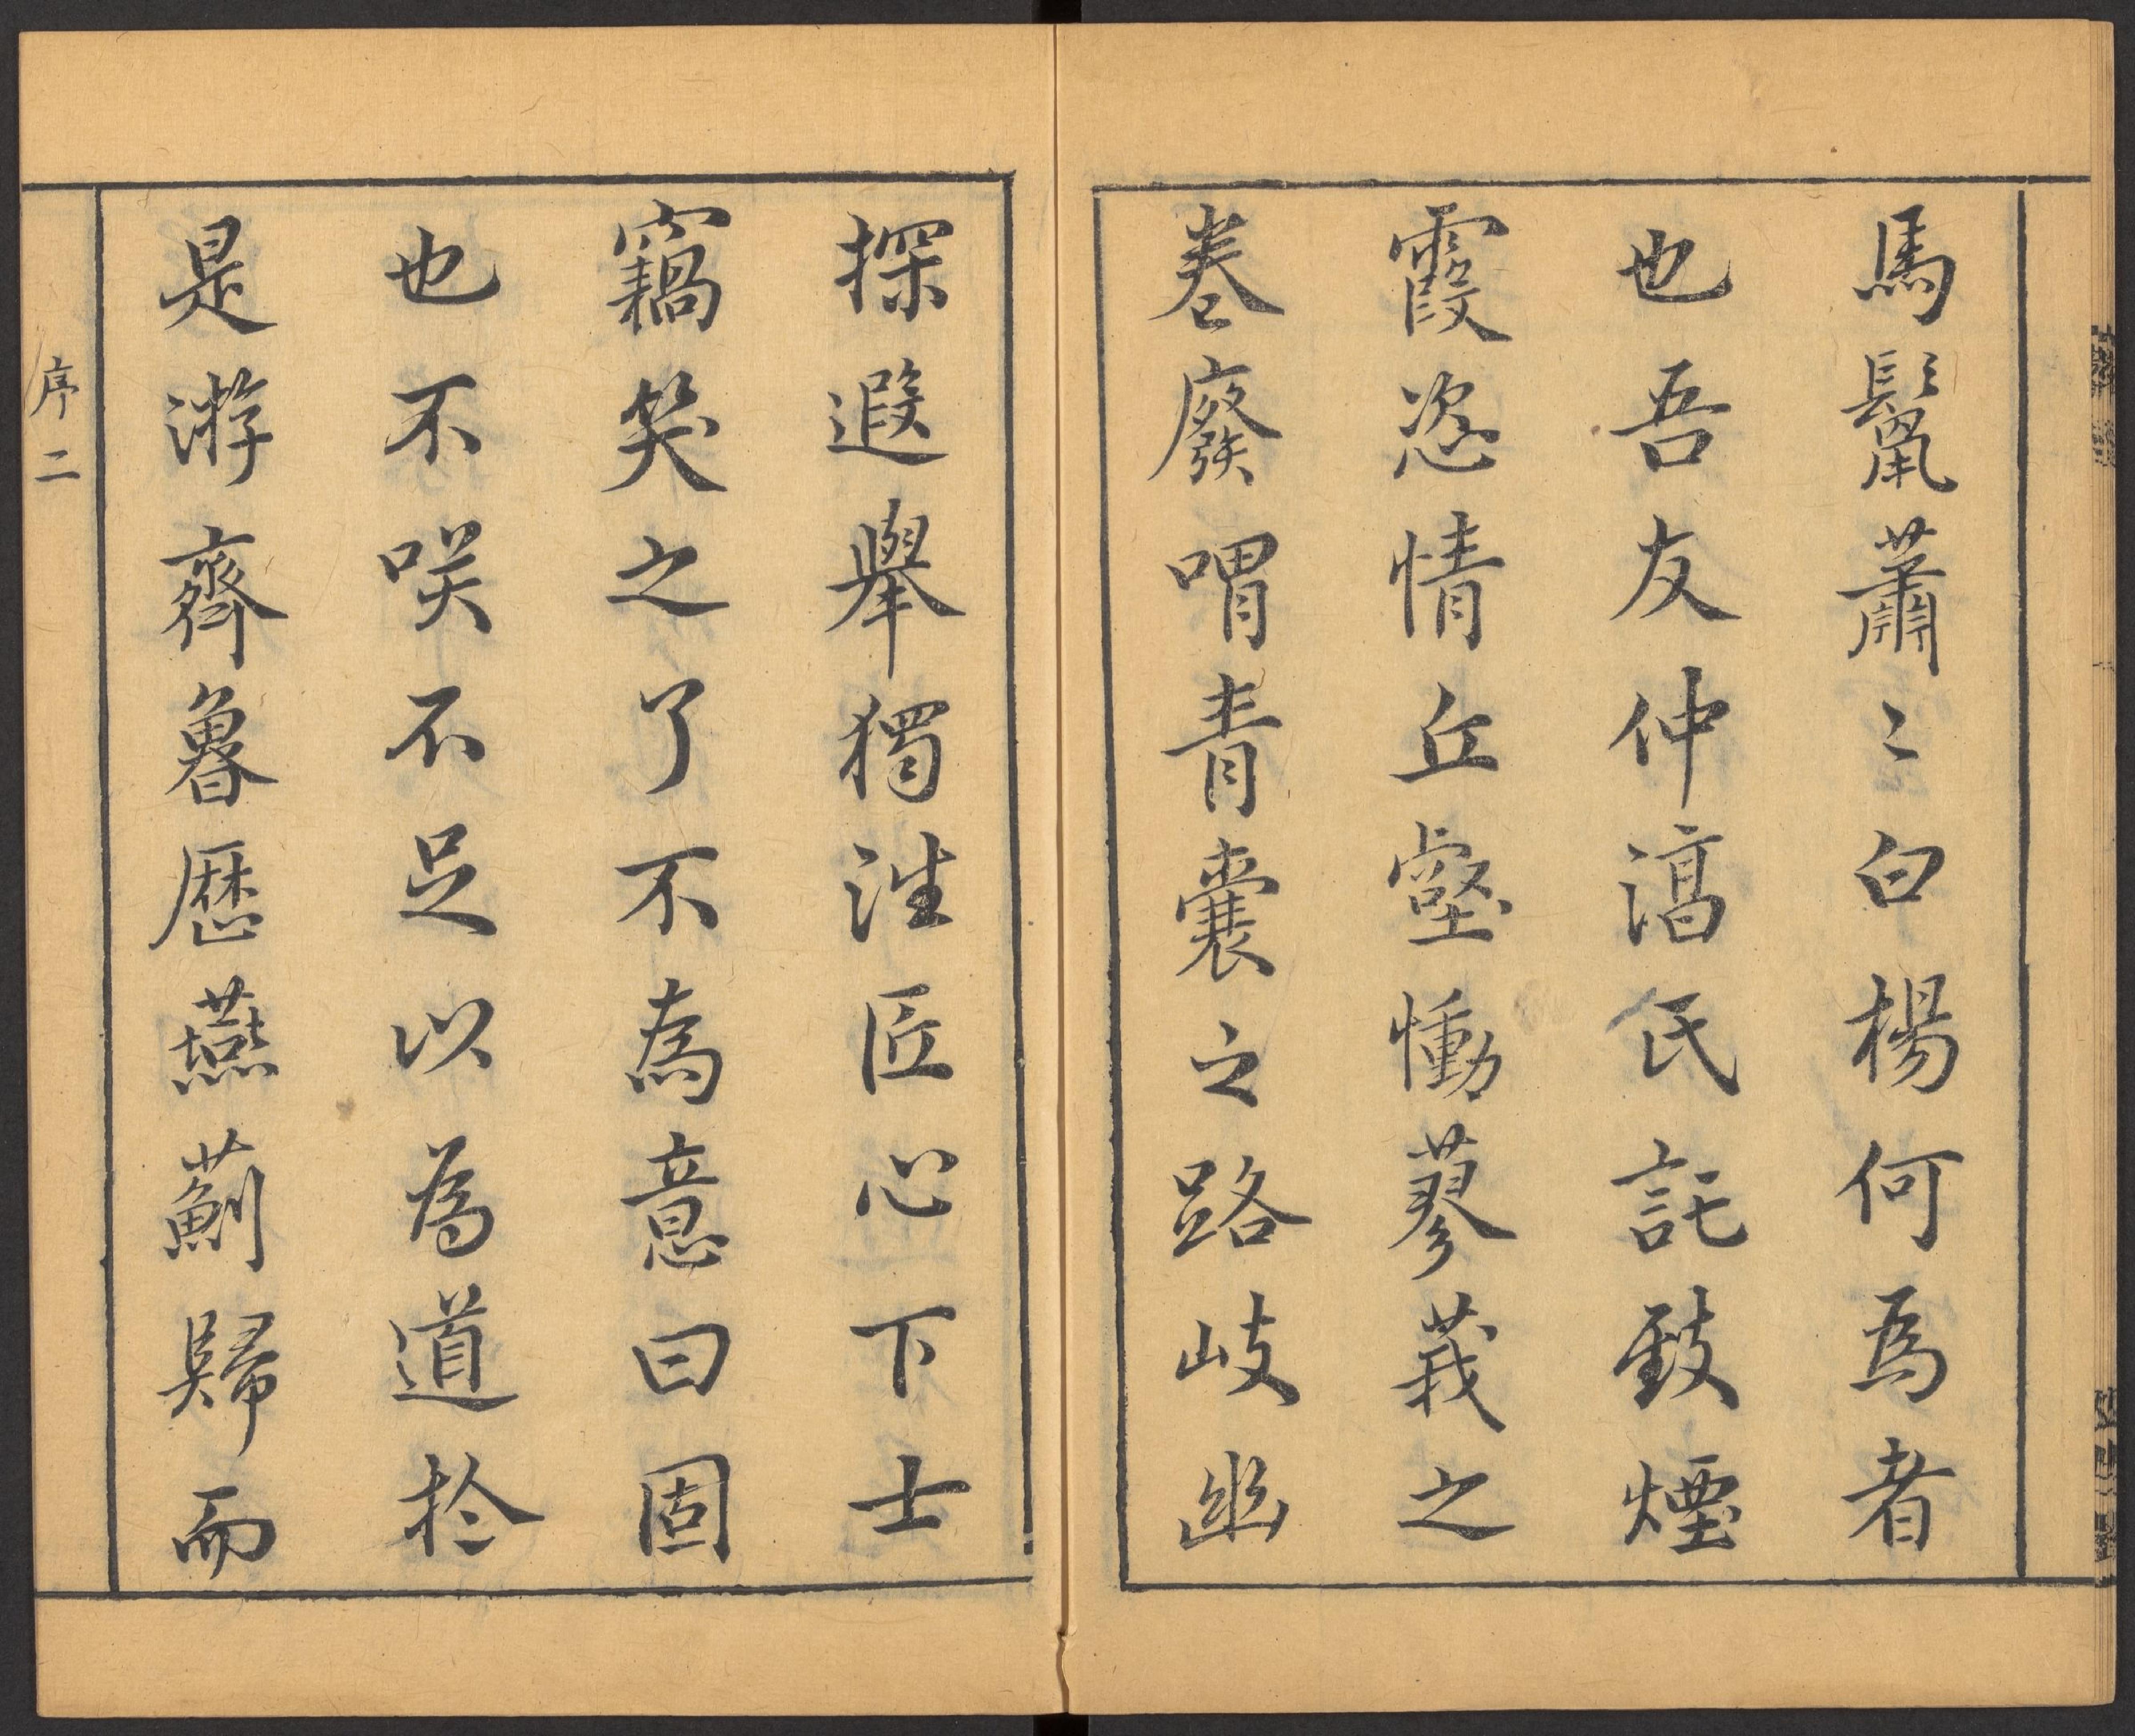 馬鬣蕭〻白楊何為者
也吾友仲滈氏託致煙
霞恣情丘壑慟蓼莪之
卷廢喟青囊之路歧幽
探遐舉獨注匠心下士
竊笑之了不為意曰固
也不咲不足以為道於
是游齊魯歷燕薊歸而
序二